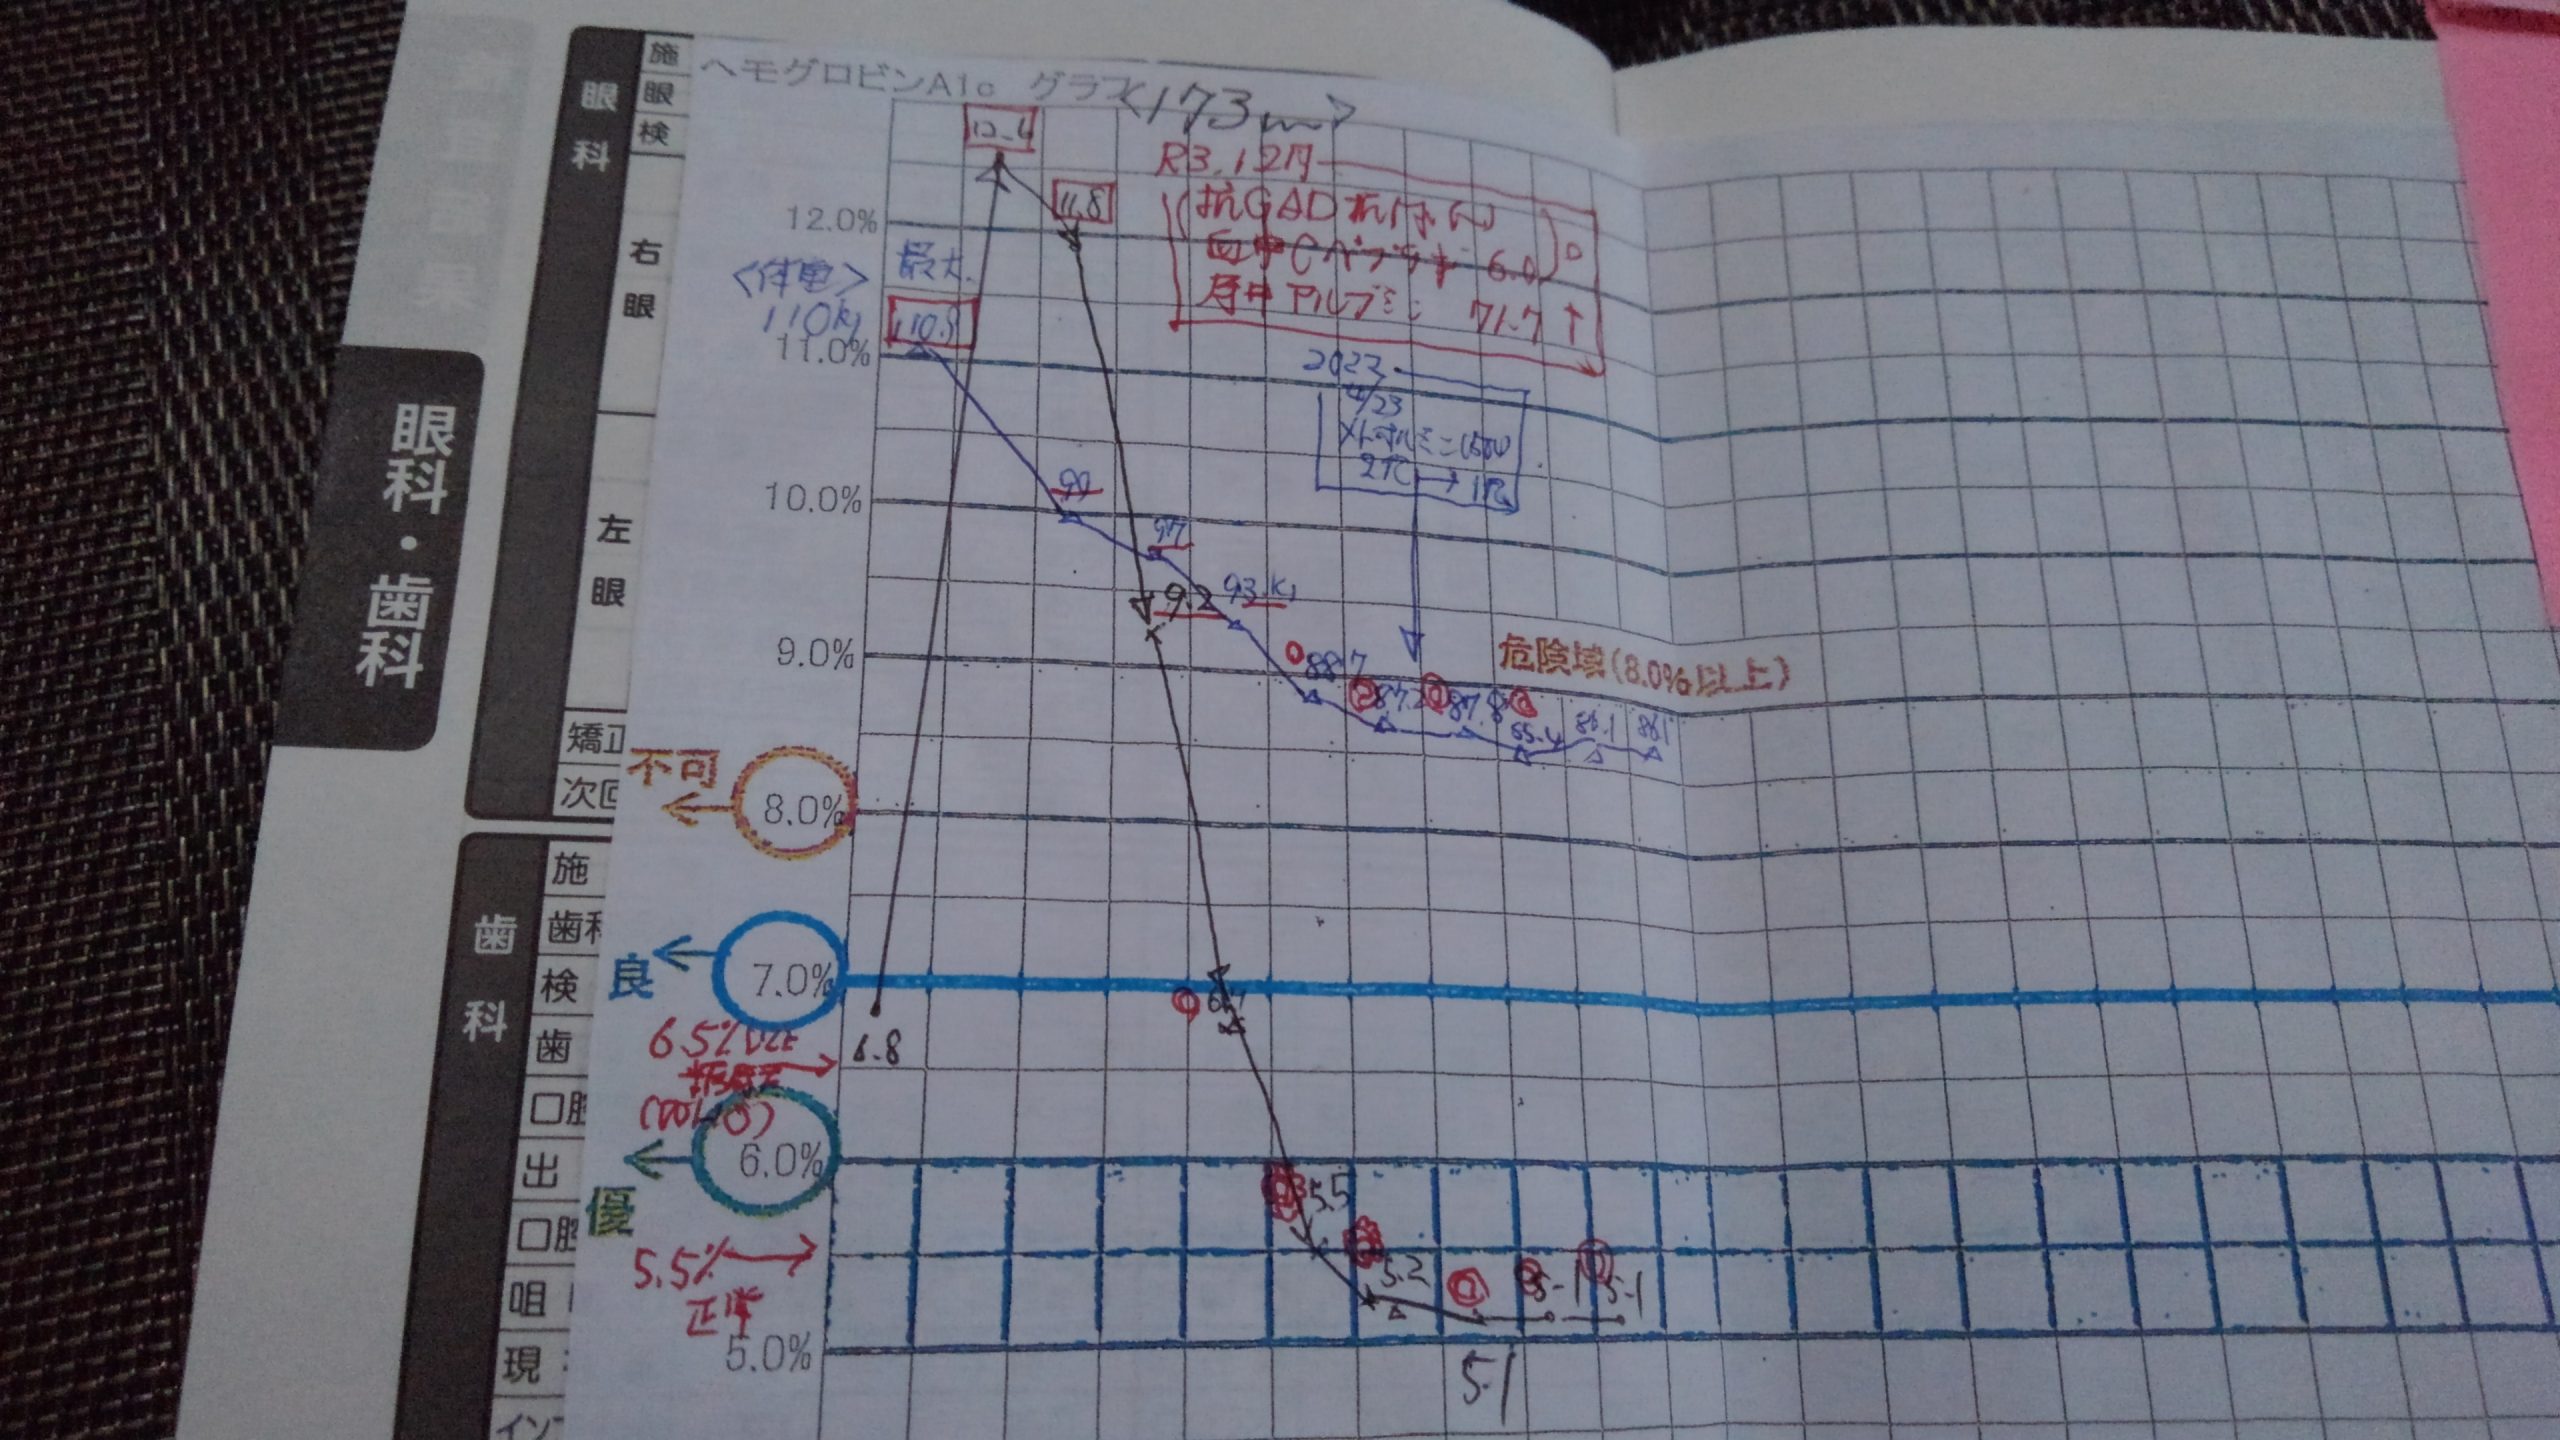 眼科・歯科
眼科
施
眼
検
右眼
左眼
矯正
次回
歯科
施
歯科
検
歯
口腔
出
口腔
咀
現
イン
ヘモグロビンA1c グラフ
<173cm>
12.4
11.8
12.0%
最大
<体重>
110kg
110.9
11.0%
R3.12月
抗GAD抗体(-)
血中Cペプチド 6.0
尿中アルブミン 71.7 ↑
2023
4/23
メトホルミン(500)
2T → 1T
10.0%
99
97
9.2
93.kg
9.0%
危険域(8.0%以上)
88.7
87.2
87.8
85.4
86.1
86.1
不可
8.0%
良
7.0%
6.8
6.5%以上
糖尿病
6.0%
優
5.5
5.5%
正常
5.2
5.1
5.1
5.0%
5.1